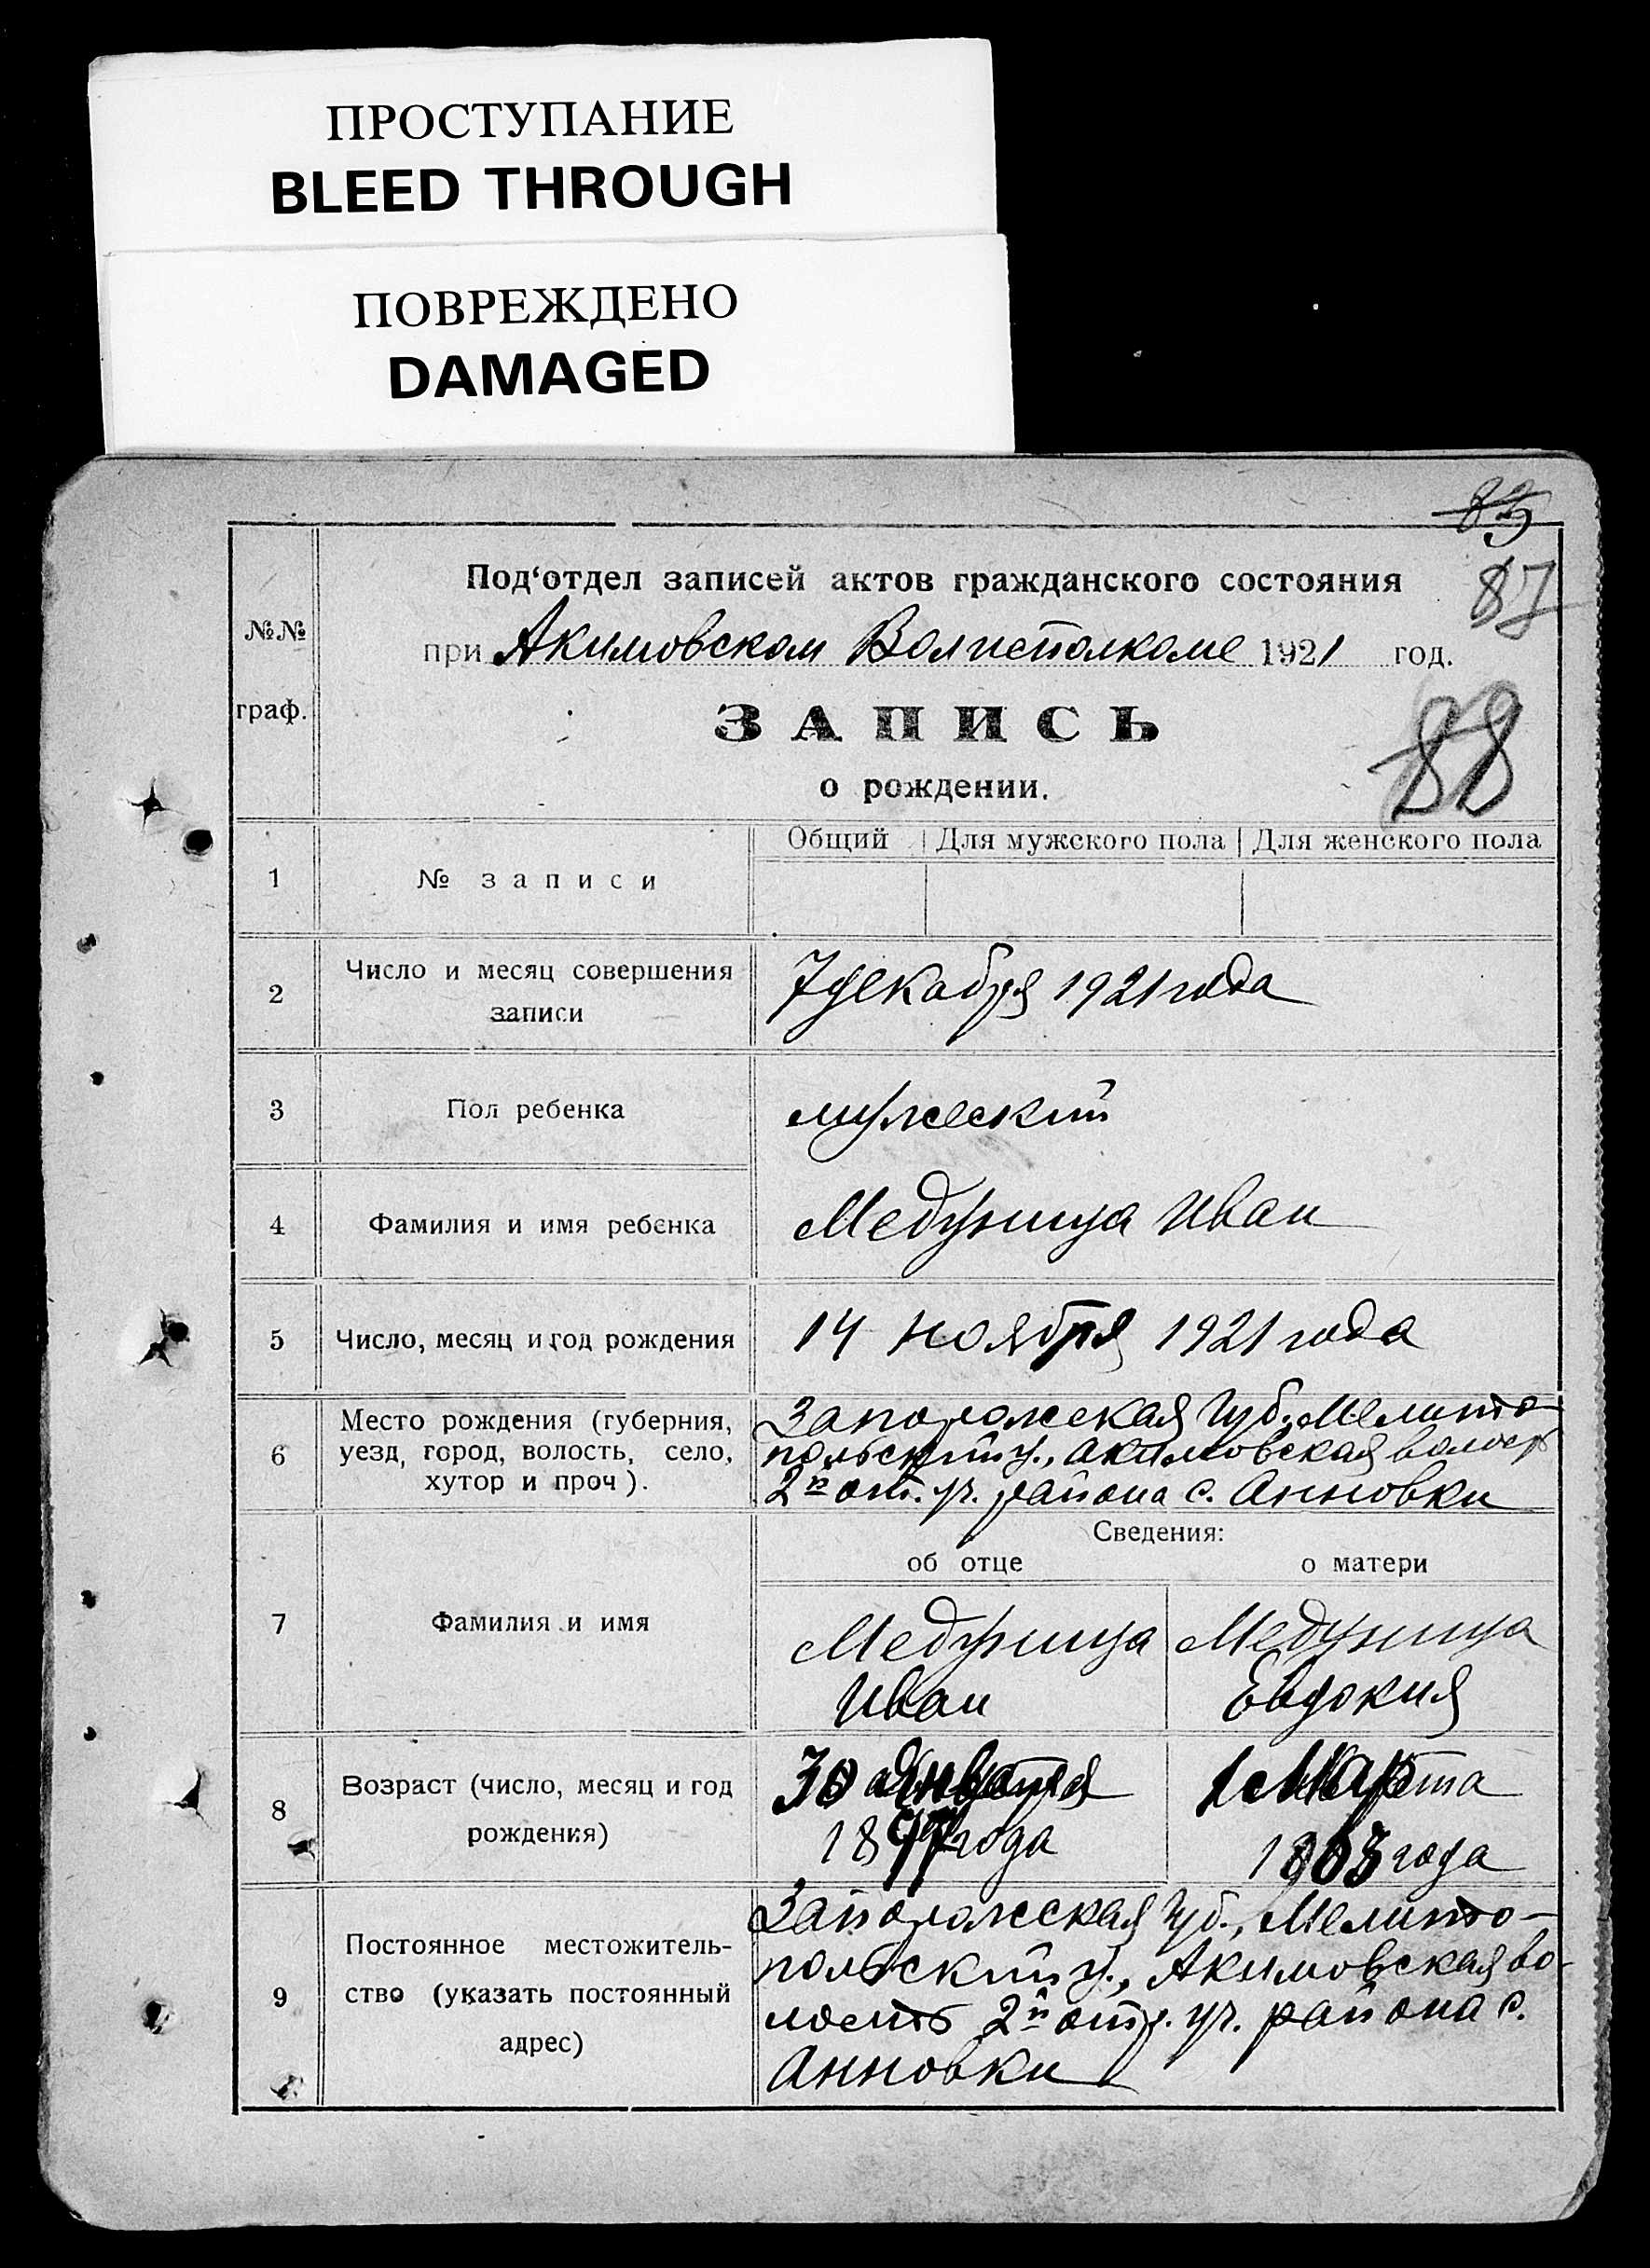 ПРОСТУПАНИЕ
BLEED THROUGH
ПОВРЕЖДЕНО
DAMAGED
87
88
№№
граф.
Под‘отдел записей актов гражданского состояния
при Акимовском Волисполкоме 1921 год.
ЗАПИСЬ
о рождении.
Общий Для мужского пола Для женского пола
1 № записи
2 Число и месяц совершения
записи
7 декабря 1921 года
3 Пол ребенка мужеский
4 Фамилия и имя ребенка Медуница Иван
5 Число, месяц и год рождения 14 ноября 1921 года
6 Место рождения (губерния,
уезд, город, волость, село,
хутор и проч).
Запорожская губ., Мелито-
польский у., Акимовская волость
2й отд. уч. района с. Анновки
Сведения:
об отце о матери
7 Фамилия и имя
Медуница Медуница
Иван Евдокия
8 Возраст (число, месяц и год
рождения)
30 января 1 марта
года года
9 Постоянное местожитель-
ство (указать постоянный
адрес)
Запорожская губ., Мелито-
польский у., Акимовская во-
лость 2й отд. уч. района с.
Анновки